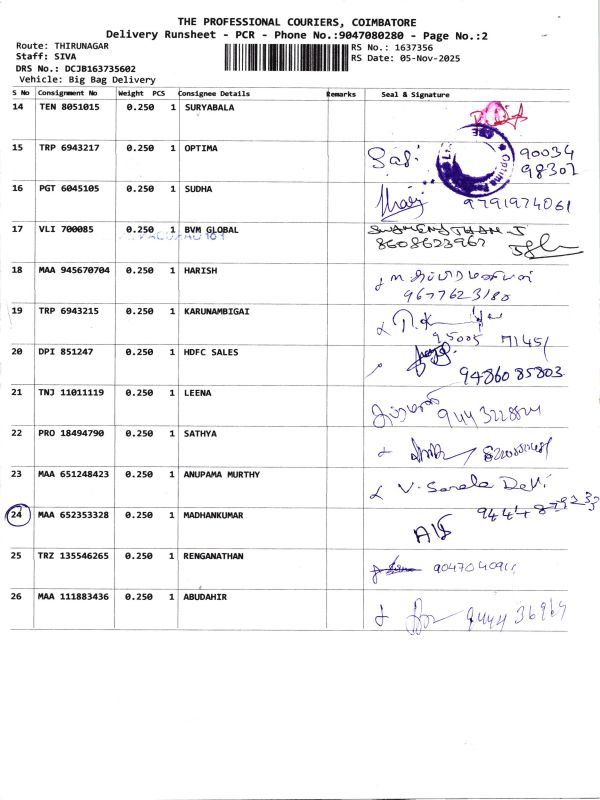 THE PROFESSIONAL COURIERS, COIMBATORE
Delivery Runsheet - PCR - Phone No.:9047080280 - Page No.:2
Route: THIRUNAGAR
Staff: SIVA
DRS No.: DCJB163735602
Vehicle: Big Bag Delivery
RS No.: 1637356
RS Date: 05-Nov-2025
S No Consignment No Weight PCS Consignee Details Remarks Seal & Signature
14 TEN 8051015 0.250 1 SURYABALA
15 TRP 6943217 0.250 1 OPTIMA
90034
98301
16 PGT 6045105 0.250 1 SUDHA
9791974061
17 VLI 700085 0.250 1 BVM GLOBAL
8608623967
18 MAA 945670704 0.250 1 HARISH
9677623180
19 TRP 6943215 0.250 1 KARUNAMBIGAI
95005 71451
20 DPI 851247 0.250 1 HDFC SALES
9486085803
21 TNJ 11011119 0.250 1 LEENA
22 PRO 18494790 0.250 1 SATHYA
23 MAA 651248423 0.250 1 ANUPAMA MURTHY
V. Sarala Devi
24 MAA 652353328 0.250 1 MADHANKUMAR
25 TRZ 135546265 0.250 1 RENGANATHAN
26 MAA 111883436 0.250 1 ABUDAHIR
9444 36969